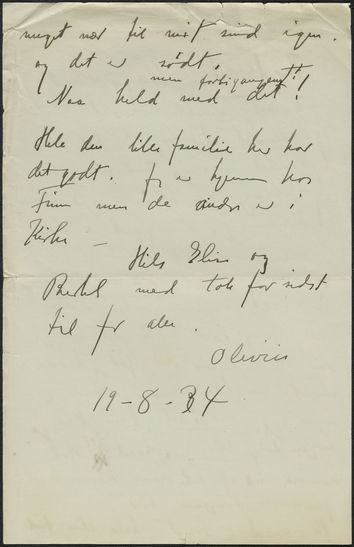 meget nær til mit sind igen.
og det er sødt.
men forbigangent!!
Naa held med det!
Hele den lille familie her har
det godt. Jeg er hjemme hos
Finn men de andre er i
Kirke –
Hils Elin og
Bertel med tak for sidst
til fr
Olivius
19-8-34